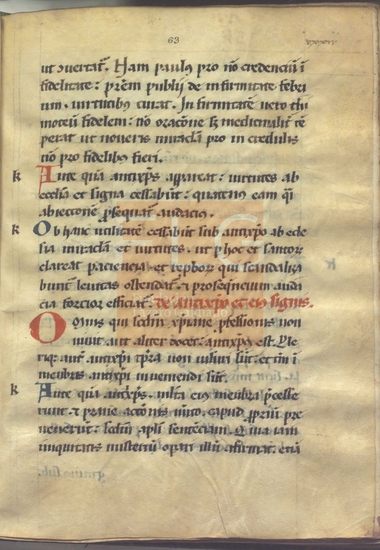 63
ut cõvertat̃. Nam paulus pro nõ credenciũ ĩ
fidelitate: pr̃em publij de infirmitate febri
um. virtutibus curat. In firmitate vero thi
moteũ fidelem: nõ oracõne sꝫ medicinalit̃ tẽ
perat ut noveris miracĺa pro in credulis
nõ pro fidelibus fieri.
k Ante quã antixp̃s appareat: virtutes ab
ecclesia et signa cessabũt: quatenus eam q̃si
abiectiorẽ ꝓsequat̃ audacius.
k Ob hanc utilitatẽ cessabũt sub antixp̃o ab eccle
sia miracĺa et virtutes. ut ꝑ hoc et sanctor̃
clareat paciencia et rephorꝫ qui scandaliza
buntʼ levitas ostendat̃. et prosequencium auda
cia forcior efficiat̃. de antixp̃o et eiꝰ signis.
Omnis qui secũdũ xp̃iane ꝓfessionis non
vivit aut aliter docet: antixp̃us est. Ple
riqꝫ aut̃ antixp̃i tp̃ra non visuri sũt: et tñ ĩ
membris antixp̃i inveniendi sũt.
k Ante quã antixp̃s. multa eiꝰ membra p̃cesse
runt. et prave actionis mẽrito. capud ꝓpriũ pre
venerũt: secũdũ ap̃li sentẽciam. Qui iam
iniquitatis misteriũ opari illũ affirmat. etiã